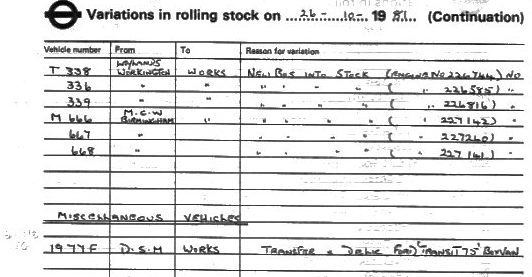 Variations in rolling stock on 26 - 10 - 1981. (Continuation)
Vehicle number From To Reason for variation
LEYLANDS
T 338 WORKINGTON WORKS NEW BUS INTO STOCK (ENGINE NO 226764) NO
336 " " " " " " ( " 226585) "
339 " " " " " " ( " 226816) "
M.C.W
M 666 BIRMINGHAM " " " " " ( " 227142) "
667 " " " " " ( " 227240) "
668 " " " " " ( " 227161) "
MISCELLANEOUS VEHICLES
1977F D.S.M WORKS TRANSFER & FORD TRANSIT 75' BOXVAN